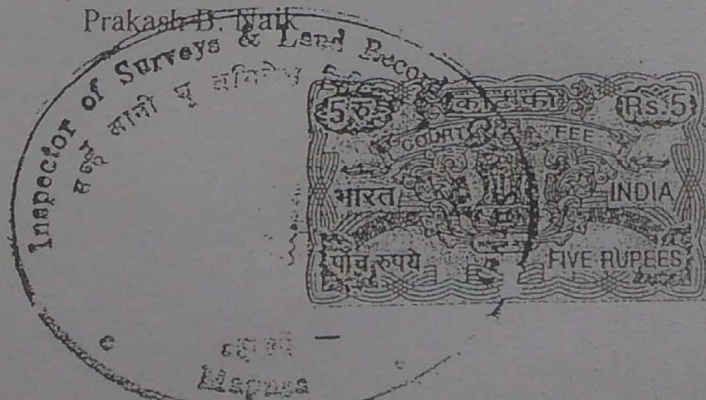 Prakash B. Naik
Inspector of Surveys & Land Records
5 रु. कोर्ट फी Rs. 5
COURT FEE
भारत INDIA
पाँच रुपये FIVE RUPEES
Mapusa